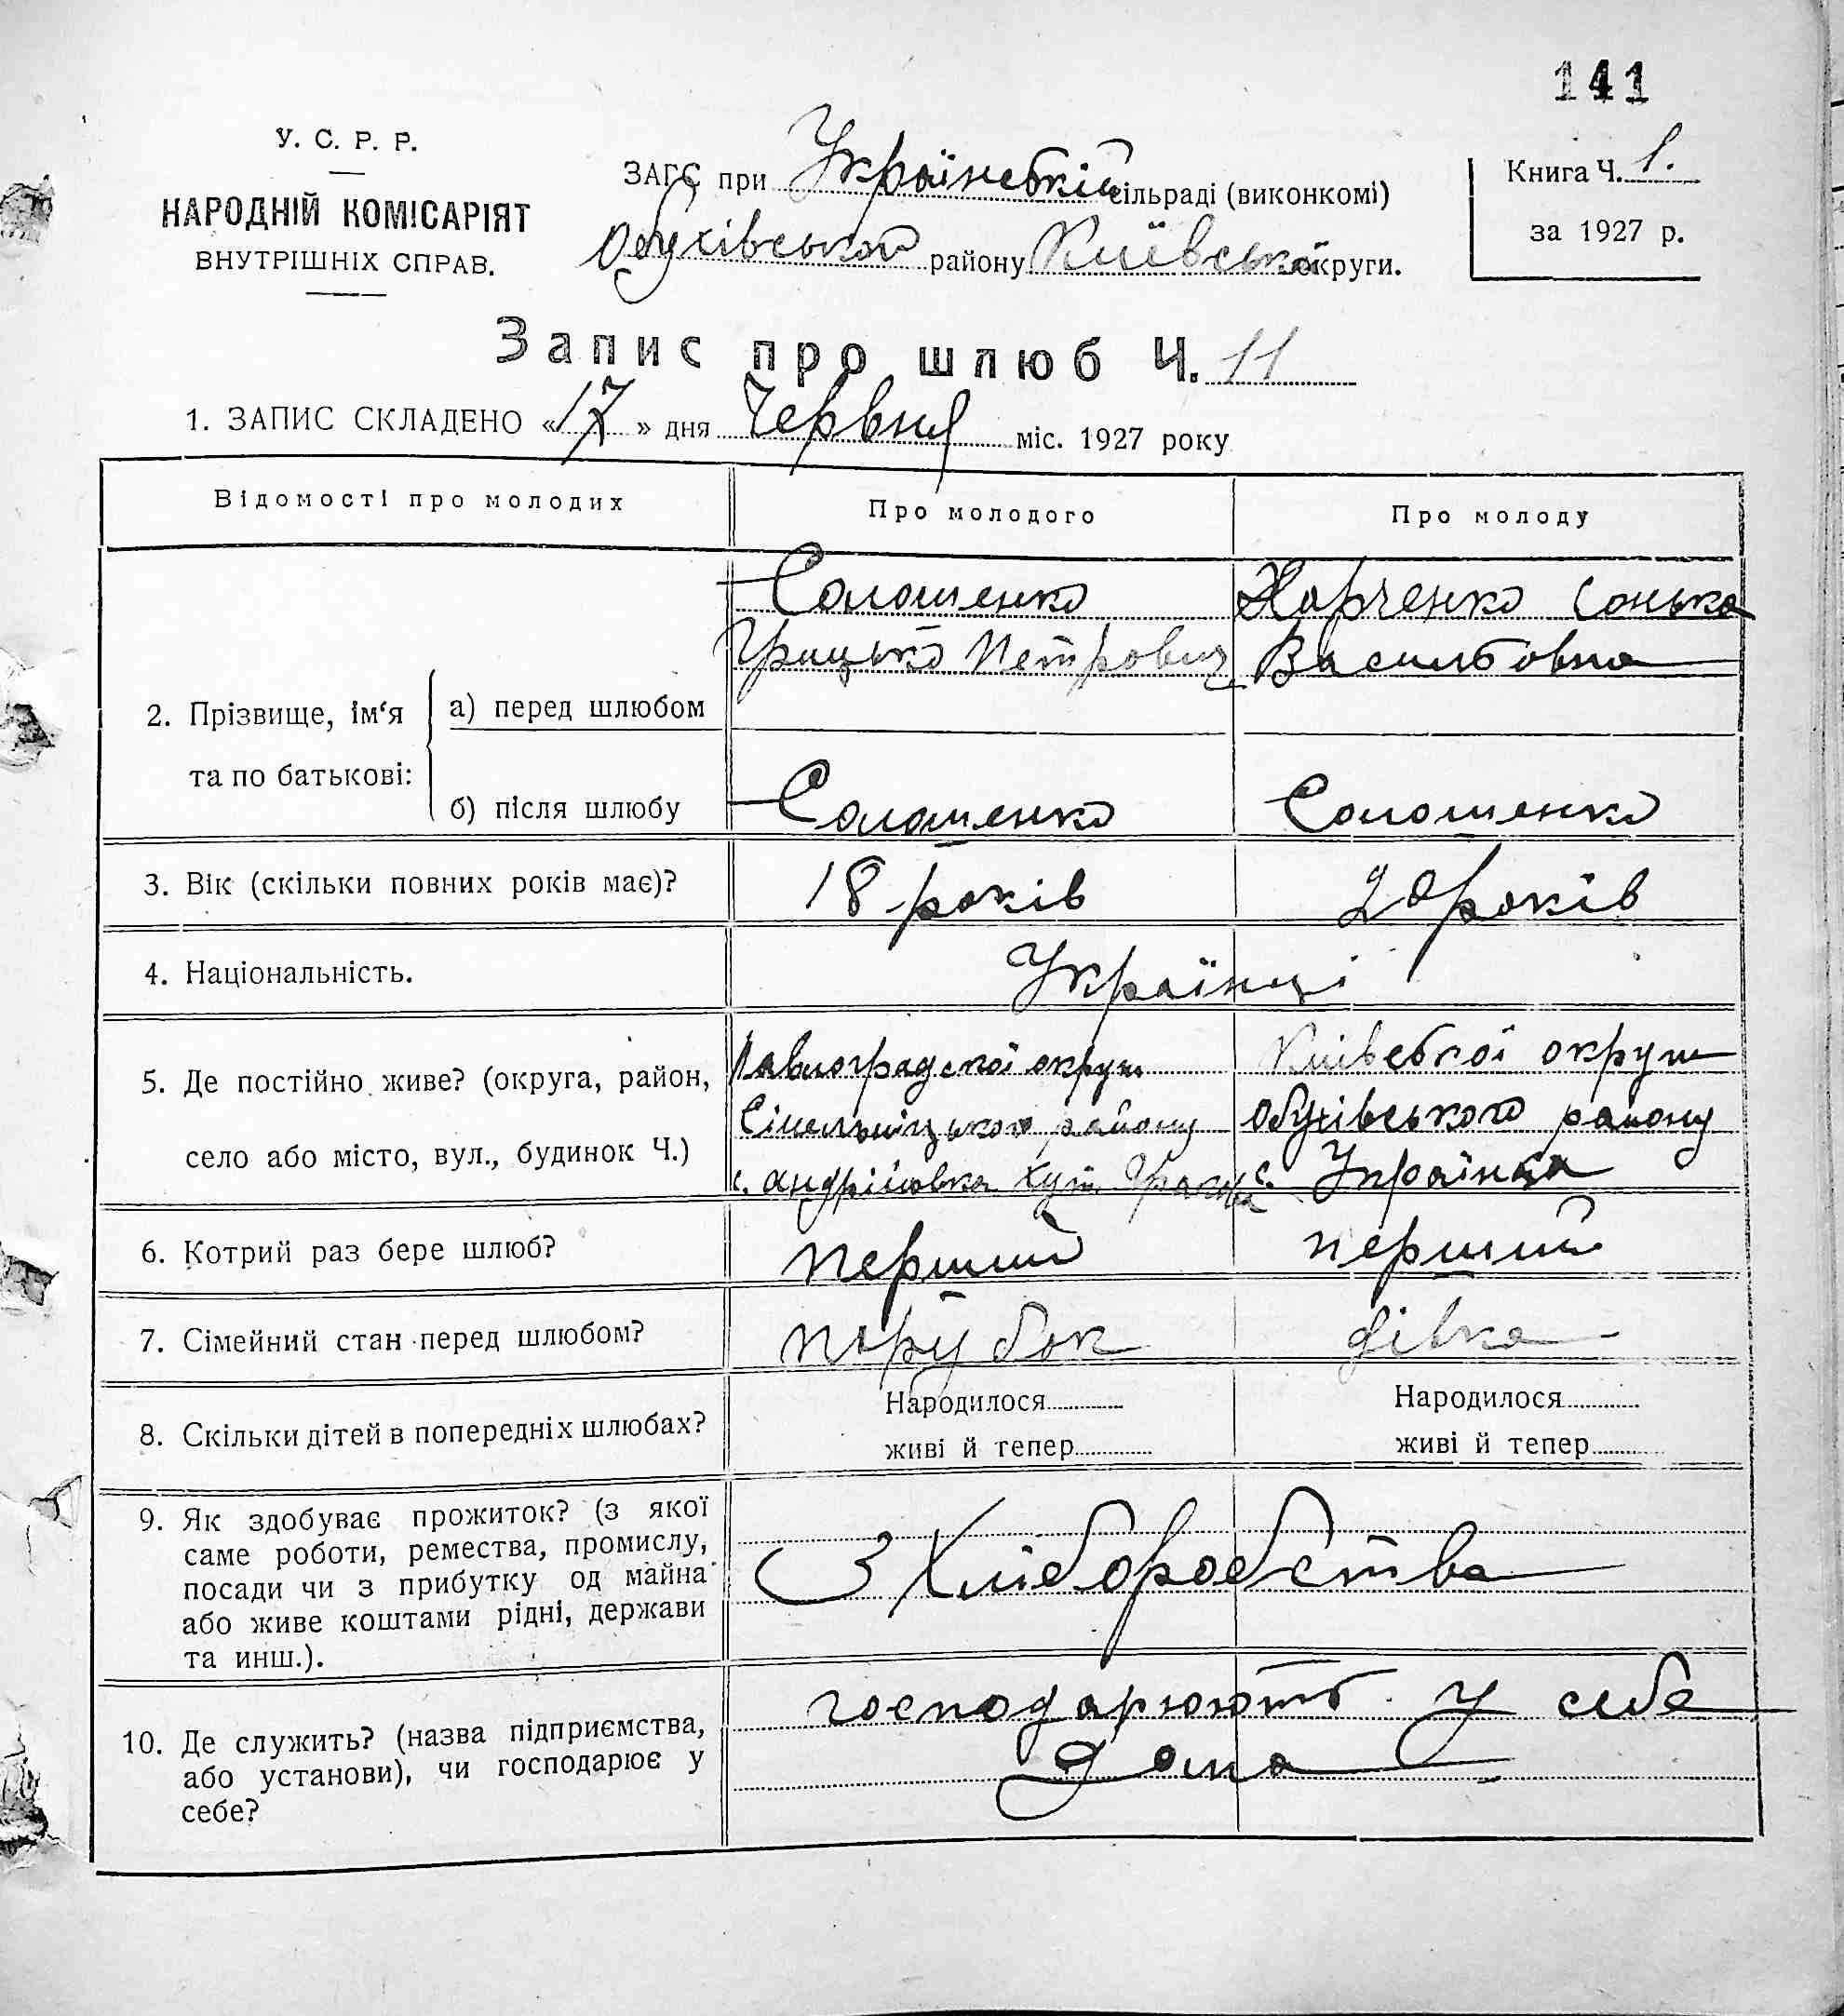 141
У. С. Р. Р.
НАРОДНІЙ КОМІСАРІЯТ
ВНУТРІШНІХ СПРАВ.
ЗАГС при Українській сільраді (виконкомі)
Обухівського району Київської округи.
Книга Ч. 1.
за 1927 р.
Запис про шлюб Ч. 11
1. ЗАПИС СКЛАДЕНО «17» дня Червня міс. 1927 року
Відомості про молодих Про молодого Про молоду
Солошенко Харченко Сонька
Грицько Петрович Васильовна
2. Прізвище, ім‘я та по батькові:
а) перед шлюбом
б) після шлюбу Солошенко Солошенко
3. Вік (скільки повних років має)? 18 років 20 років
4. Національність. Українці
5. Де постійно живе? (округа, район, село або місто, вул., будинок Ч.)
Павлоградської округи Київської округи
Сінельніцького району Обухівського району
с. Андріївка хут. с. Українка
6. Котрий раз бере шлюб? перший перший
7. Сімейний стан перед шлюбом? парубок дівка
8. Скільки дітей в попередніх шлюбах? Народилося Народилося
живі й тепер живі й тепер
9. Як здобуває прожиток? (з якої
саме роботи, ремества, промислу,
посади чи з прибутку од майна
або живе коштами рідні, держави
та инш.).
З Хліборобства
10. Де служить? (назва підприємства,
або установи), чи господарює у
себе?
господарюють у себе
дома